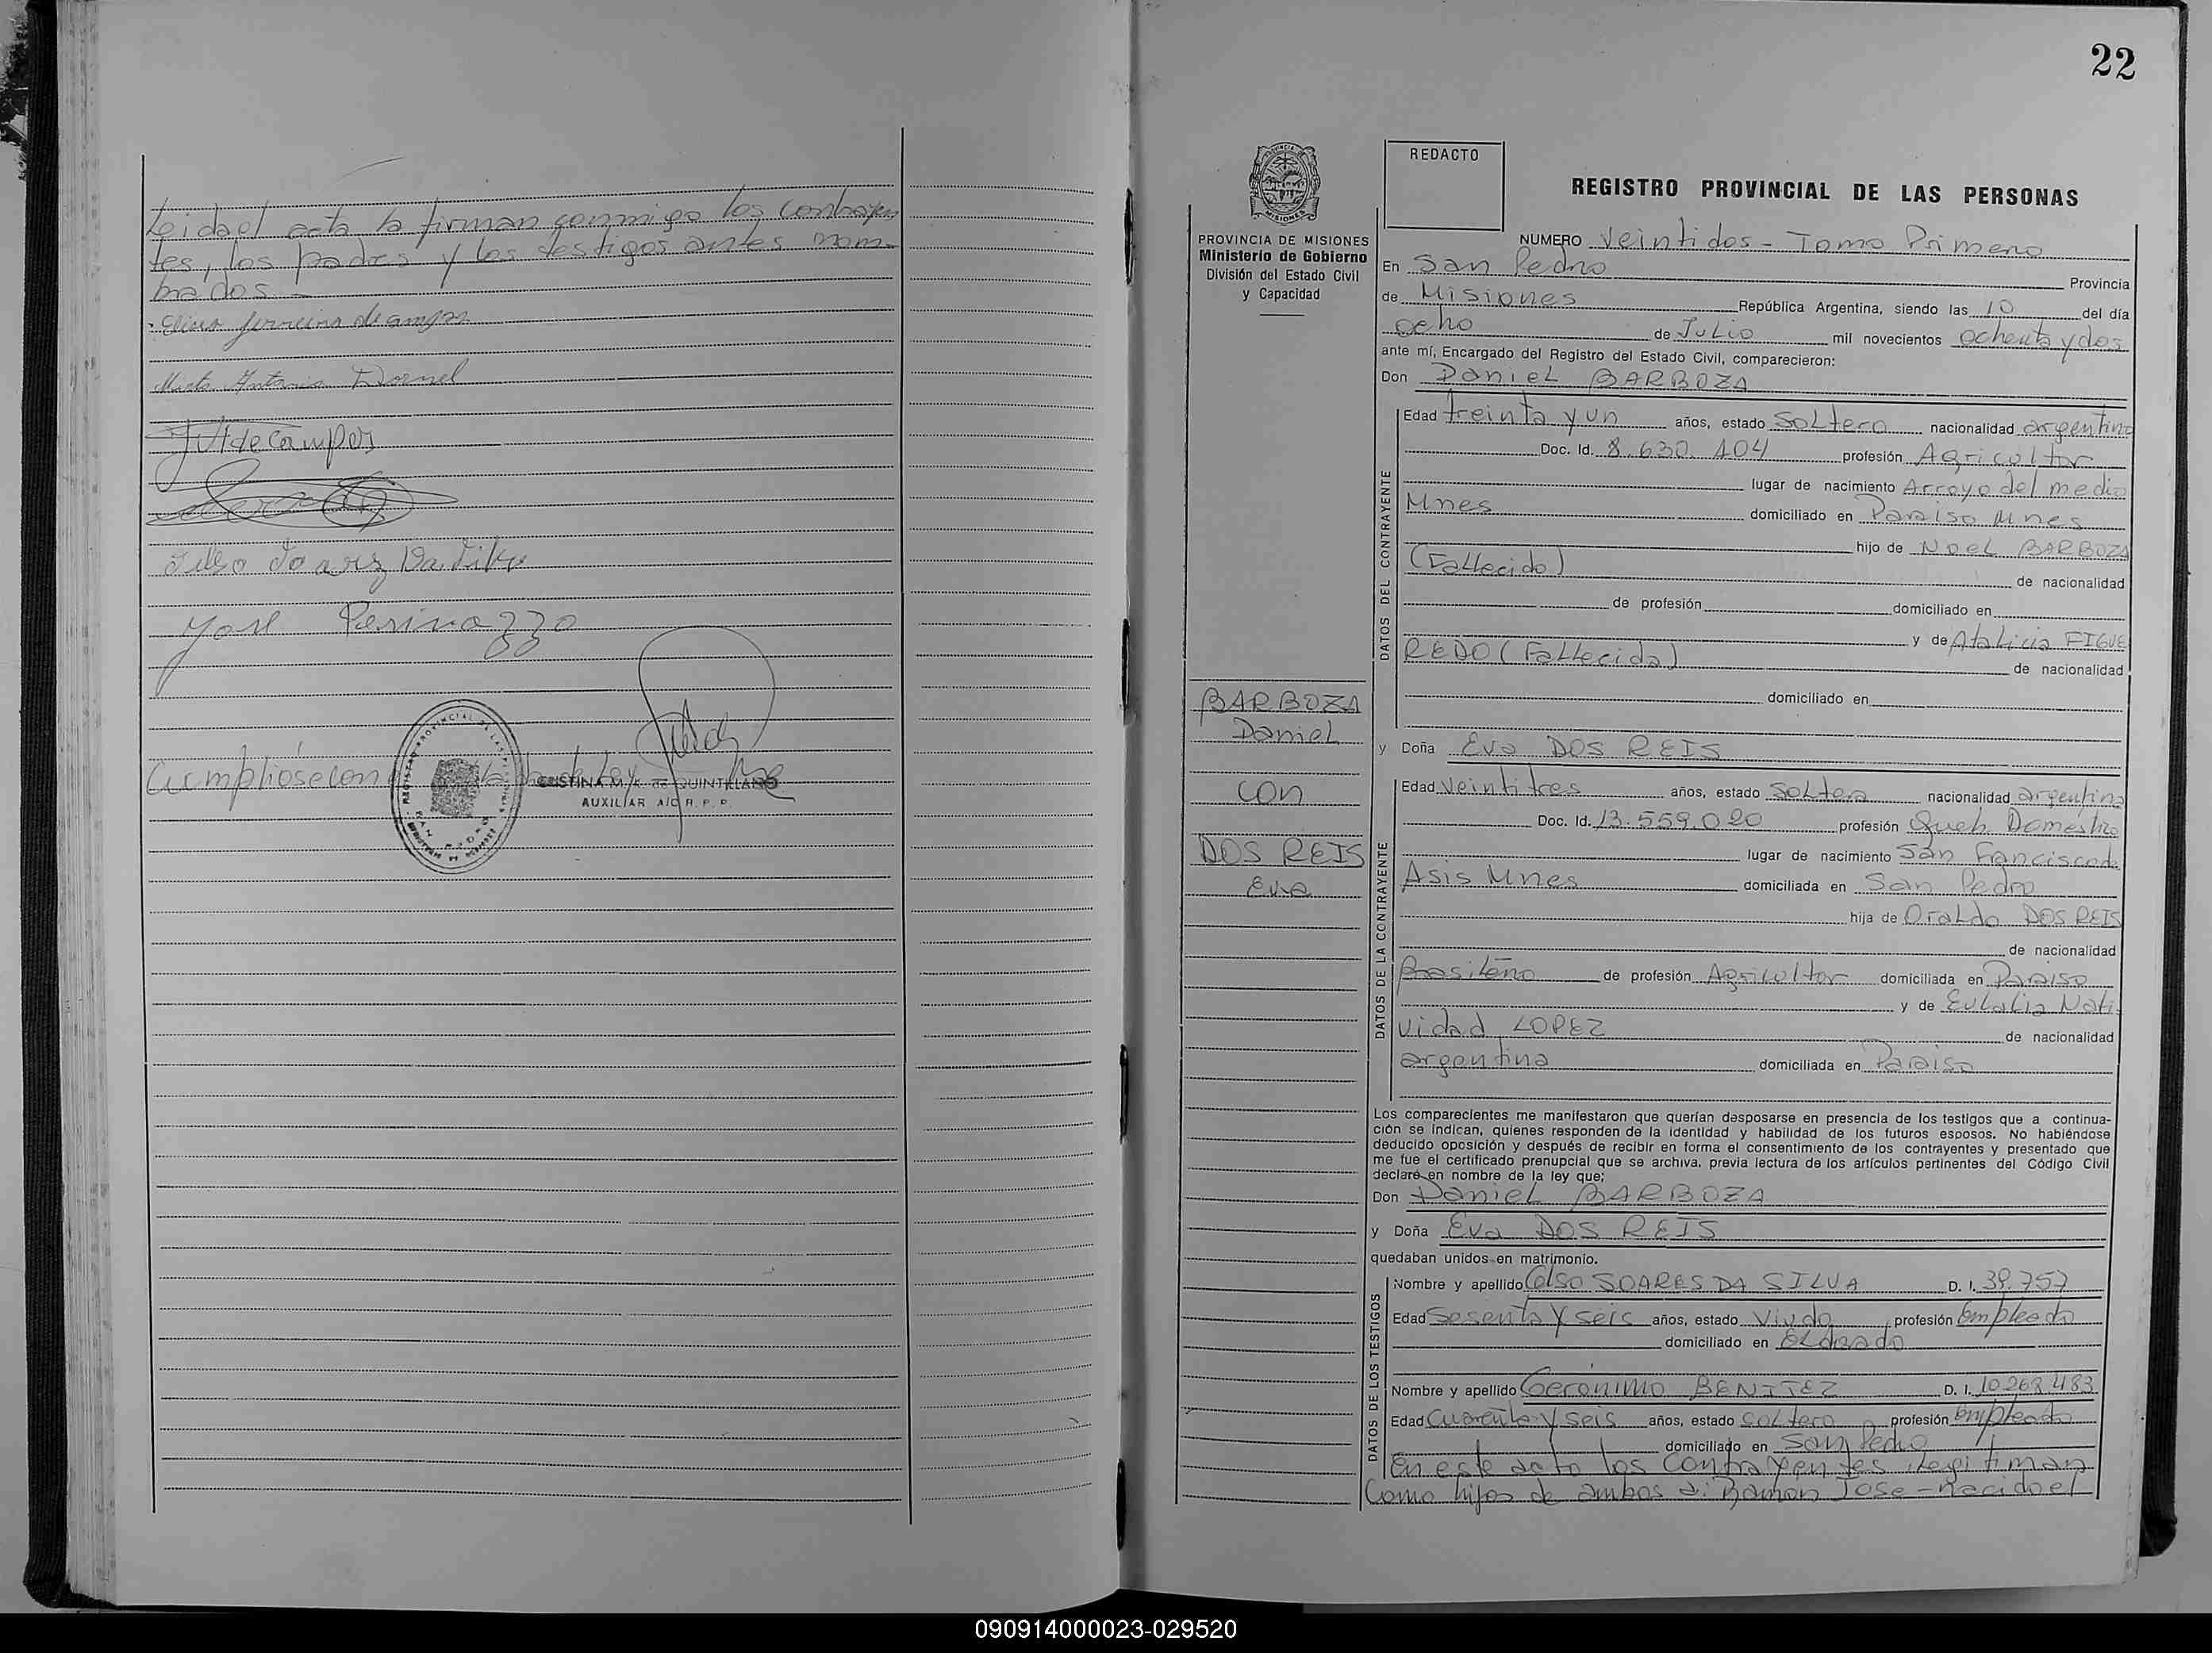 Leida el acta la firman conmigo los contrayen
tes, los padres y los testigos antes nom-
brados.-
Ferreira de
Antonia Dornel
JVtdeCampos
José Perinazzo
REGISTRO PROVINCIAL DE LAS PERSONAS
SAN PEDRO
Cumpliose con
CRISTINA M. K. de QUINTELIANO
AUXILIAR A/C R. P. P.
22
REDACTO
PROVINCIA DE MISIONES
Ministerio de Gobierno
División del Estado Civil
y Capacidad
REGISTRO PROVINCIAL DE LAS PERSONAS
NUMERO Veintidos - Tomo Primero
En San Pedro Provincia
de Misiones República Argentina, siendo las 10 del día
ocho de Julio mil novecientos ochenta y dos
ante mí, Encargado del Registro del Estado Civil, comparecieron:
Don Daniel BARBOZA
DATOS DEL CONTRAYENTE
Edad treinta y un años, estado Soltero nacionalidad argentino
Doc. Id. 8.630.104 profesión Agricultor
lugar de nacimiento Arroyo del medio
Mnes domiciliado en Paraiso Mnes
hijo de Noel BARBOZA
(Fallecido) de nacionalidad
de profesión domiciliado en
y de Atalicia FIGUE
REDO (Fallecida) de nacionalidad
domiciliado en
BARBOZA
Daniel
con
DOS REIS
Eva
y Doña Eva DOS REIS
DATOS DE LA CONTRAYENTE
Edad Veintitres años, estado Soltera nacionalidad argentina
Doc. Id. 13.559.020 profesión Queh. Domestico
lugar de nacimiento San Francisco de
Asis Mnes domiciliada en San Pedro
hija de Oraldo DOS REIS
de nacionalidad
Brasileño de profesión Agricultor domiciliada en Paraiso
y de Eulalia Nati-
vidad LOPEZ de nacionalidad
argentina domiciliada en Paraiso
Los comparecientes me manifestaron que querían desposarse en presencia de los testigos que a continua-
ción se indican, quienes responden de la identidad y habilidad de los futuros esposos. No habiéndose
deducido oposición y después de recibir en forma el consentimiento de los contrayentes y presentado que
me fue el certificado prenupcial que se archiva, previa lectura de los artículos pertinentes del Código Civil
declaré en nombre de la ley que:
Don Daniel BARBOZA
y Doña Eva DOS REIS
quedaban unidos en matrimonio.
DATOS DE LOS TESTIGOS
Nombre y apellido Celso SOARES DA SILVA D. I. 39.757
Edad Sesenta y seis años, estado Viudo profesión Empleado
domiciliado en Eldorado
Nombre y apellido Gerónimo BENITEZ D. I. 10.268.483
Edad Cuarenta y seis años, estado soltero profesión Empleado
domiciliado en San Pedro
En este acto los contrayentes legitiman
Como hijos de ambos a: Ramon Jose - nacido el
090914000023-029520